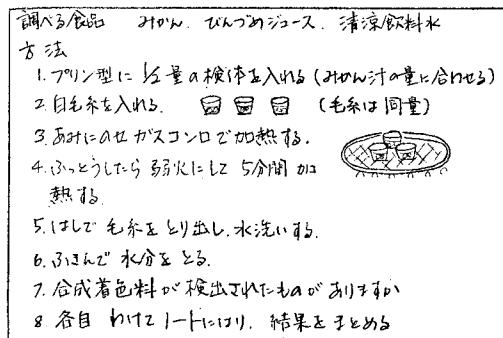 調べる食品　みかん、びんづめジュース、清涼飲料水
方法
1. プリン型に ½量の検体を入れる(みかん汁の量に合わせる)
2. 白毛糸を入れる.　(毛糸は同量)
3. あみにのせ ガスコンロで加熱する.
4. ふっとうしたら 弱火にして 5分間 加
熱する.
5. はしで 毛糸を とり出し、水洗いする.
6. ふきんで 水分を とる.
7. 合成着色料が 検出されたものが ありますか
8. 各自 わけて ノートにはり、結果を まとめる